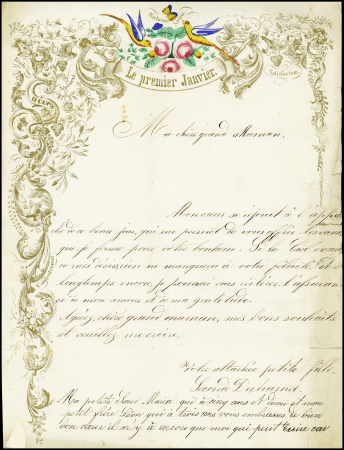 Le premier Janvier.
Satisfaction
Ma chère grand Maman,
Mon cœur se réjouit à l'appro
che de ce beau jour, qui me permet de vous offrir les vœux
que je forme pour votre bonheur. Si le Ciel exauce
ces mes désirs rien ne manquera à votre félicité. Et
longtemps encore je pourrai vous réitérer l'assuran
ce de mon amour et de ma gratitude.
Agréez, chère grand maman, nos bons souhaits
et veuillez me croire.
Votre attachée petite fille,
Seconde
Ma petite Sœur Maria qui a cinq ans et demi et mon
petit frère Léon qui a trois ans vous embrasse de bien
bon cœur il n'y a encore que moi qui peut Ecrire car